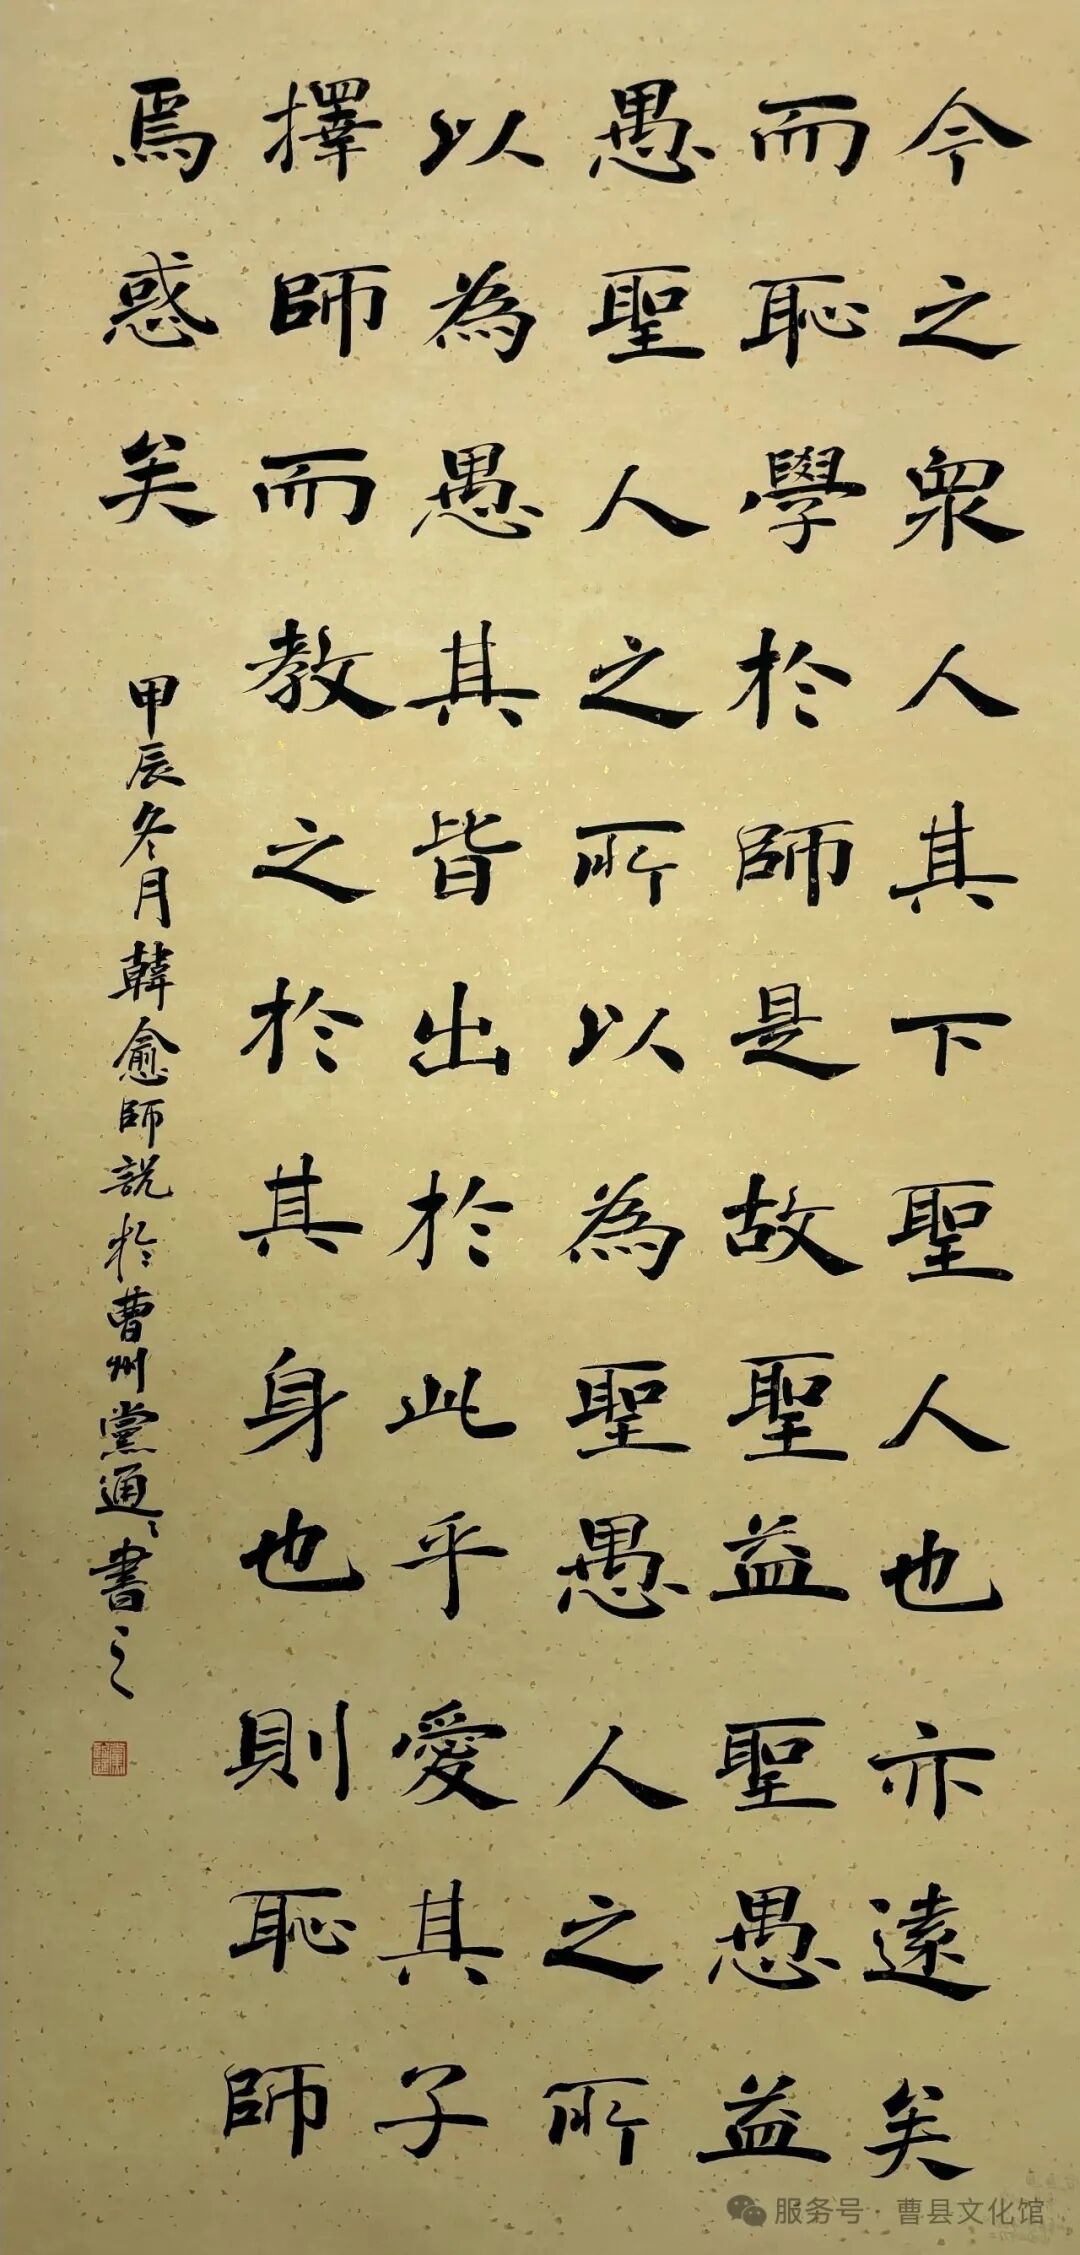 今之眾人其下聖人也亦遠矣
而恥學於師是故聖益聖愚益
愚聖人之所以為聖愚人之所
以為愚其皆出於此乎愛其子
擇師而教之於其身也則恥師
焉惑矣
甲辰冬月韓愈師說於曹州黨通〻書之
服务号 · 曹县文化馆